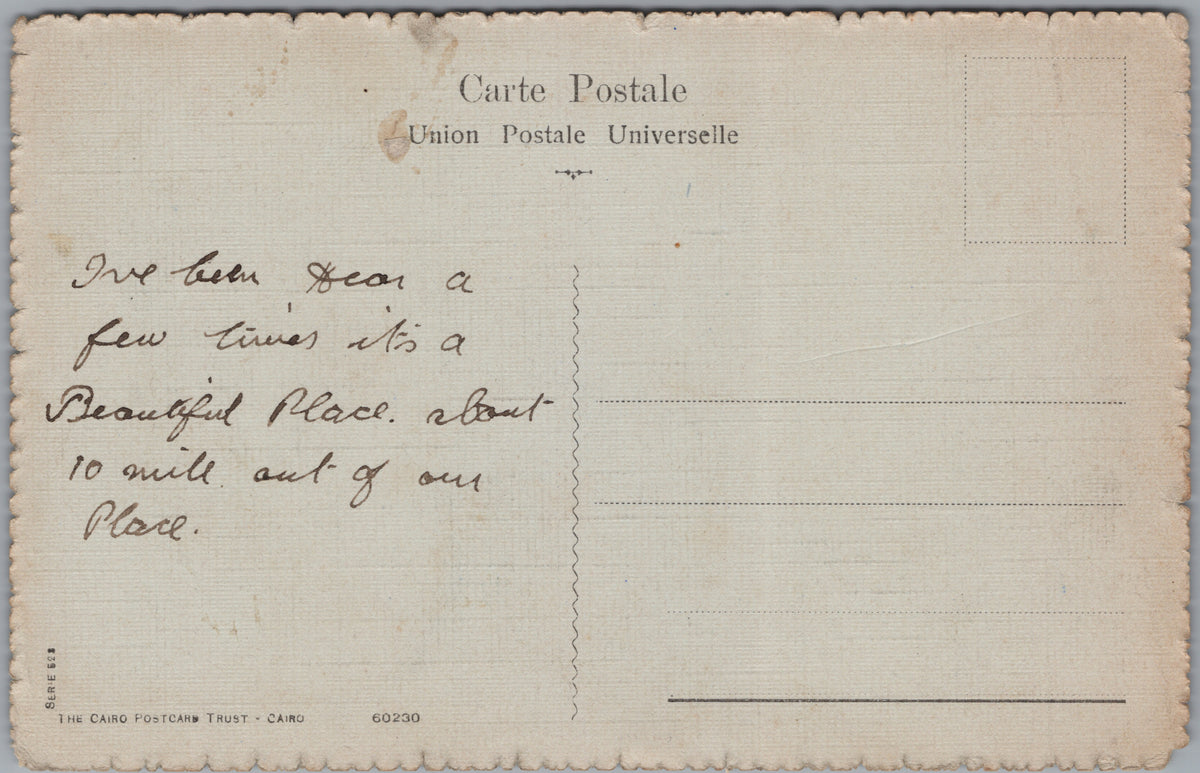 Carte Postale
Union Postale Universelle
I've been Hear a
few times it's a
Beautiful Place. about
10 mill out of our
Place.
SERIE
THE CAIRO POSTCARD TRUST - CAIRO 60230